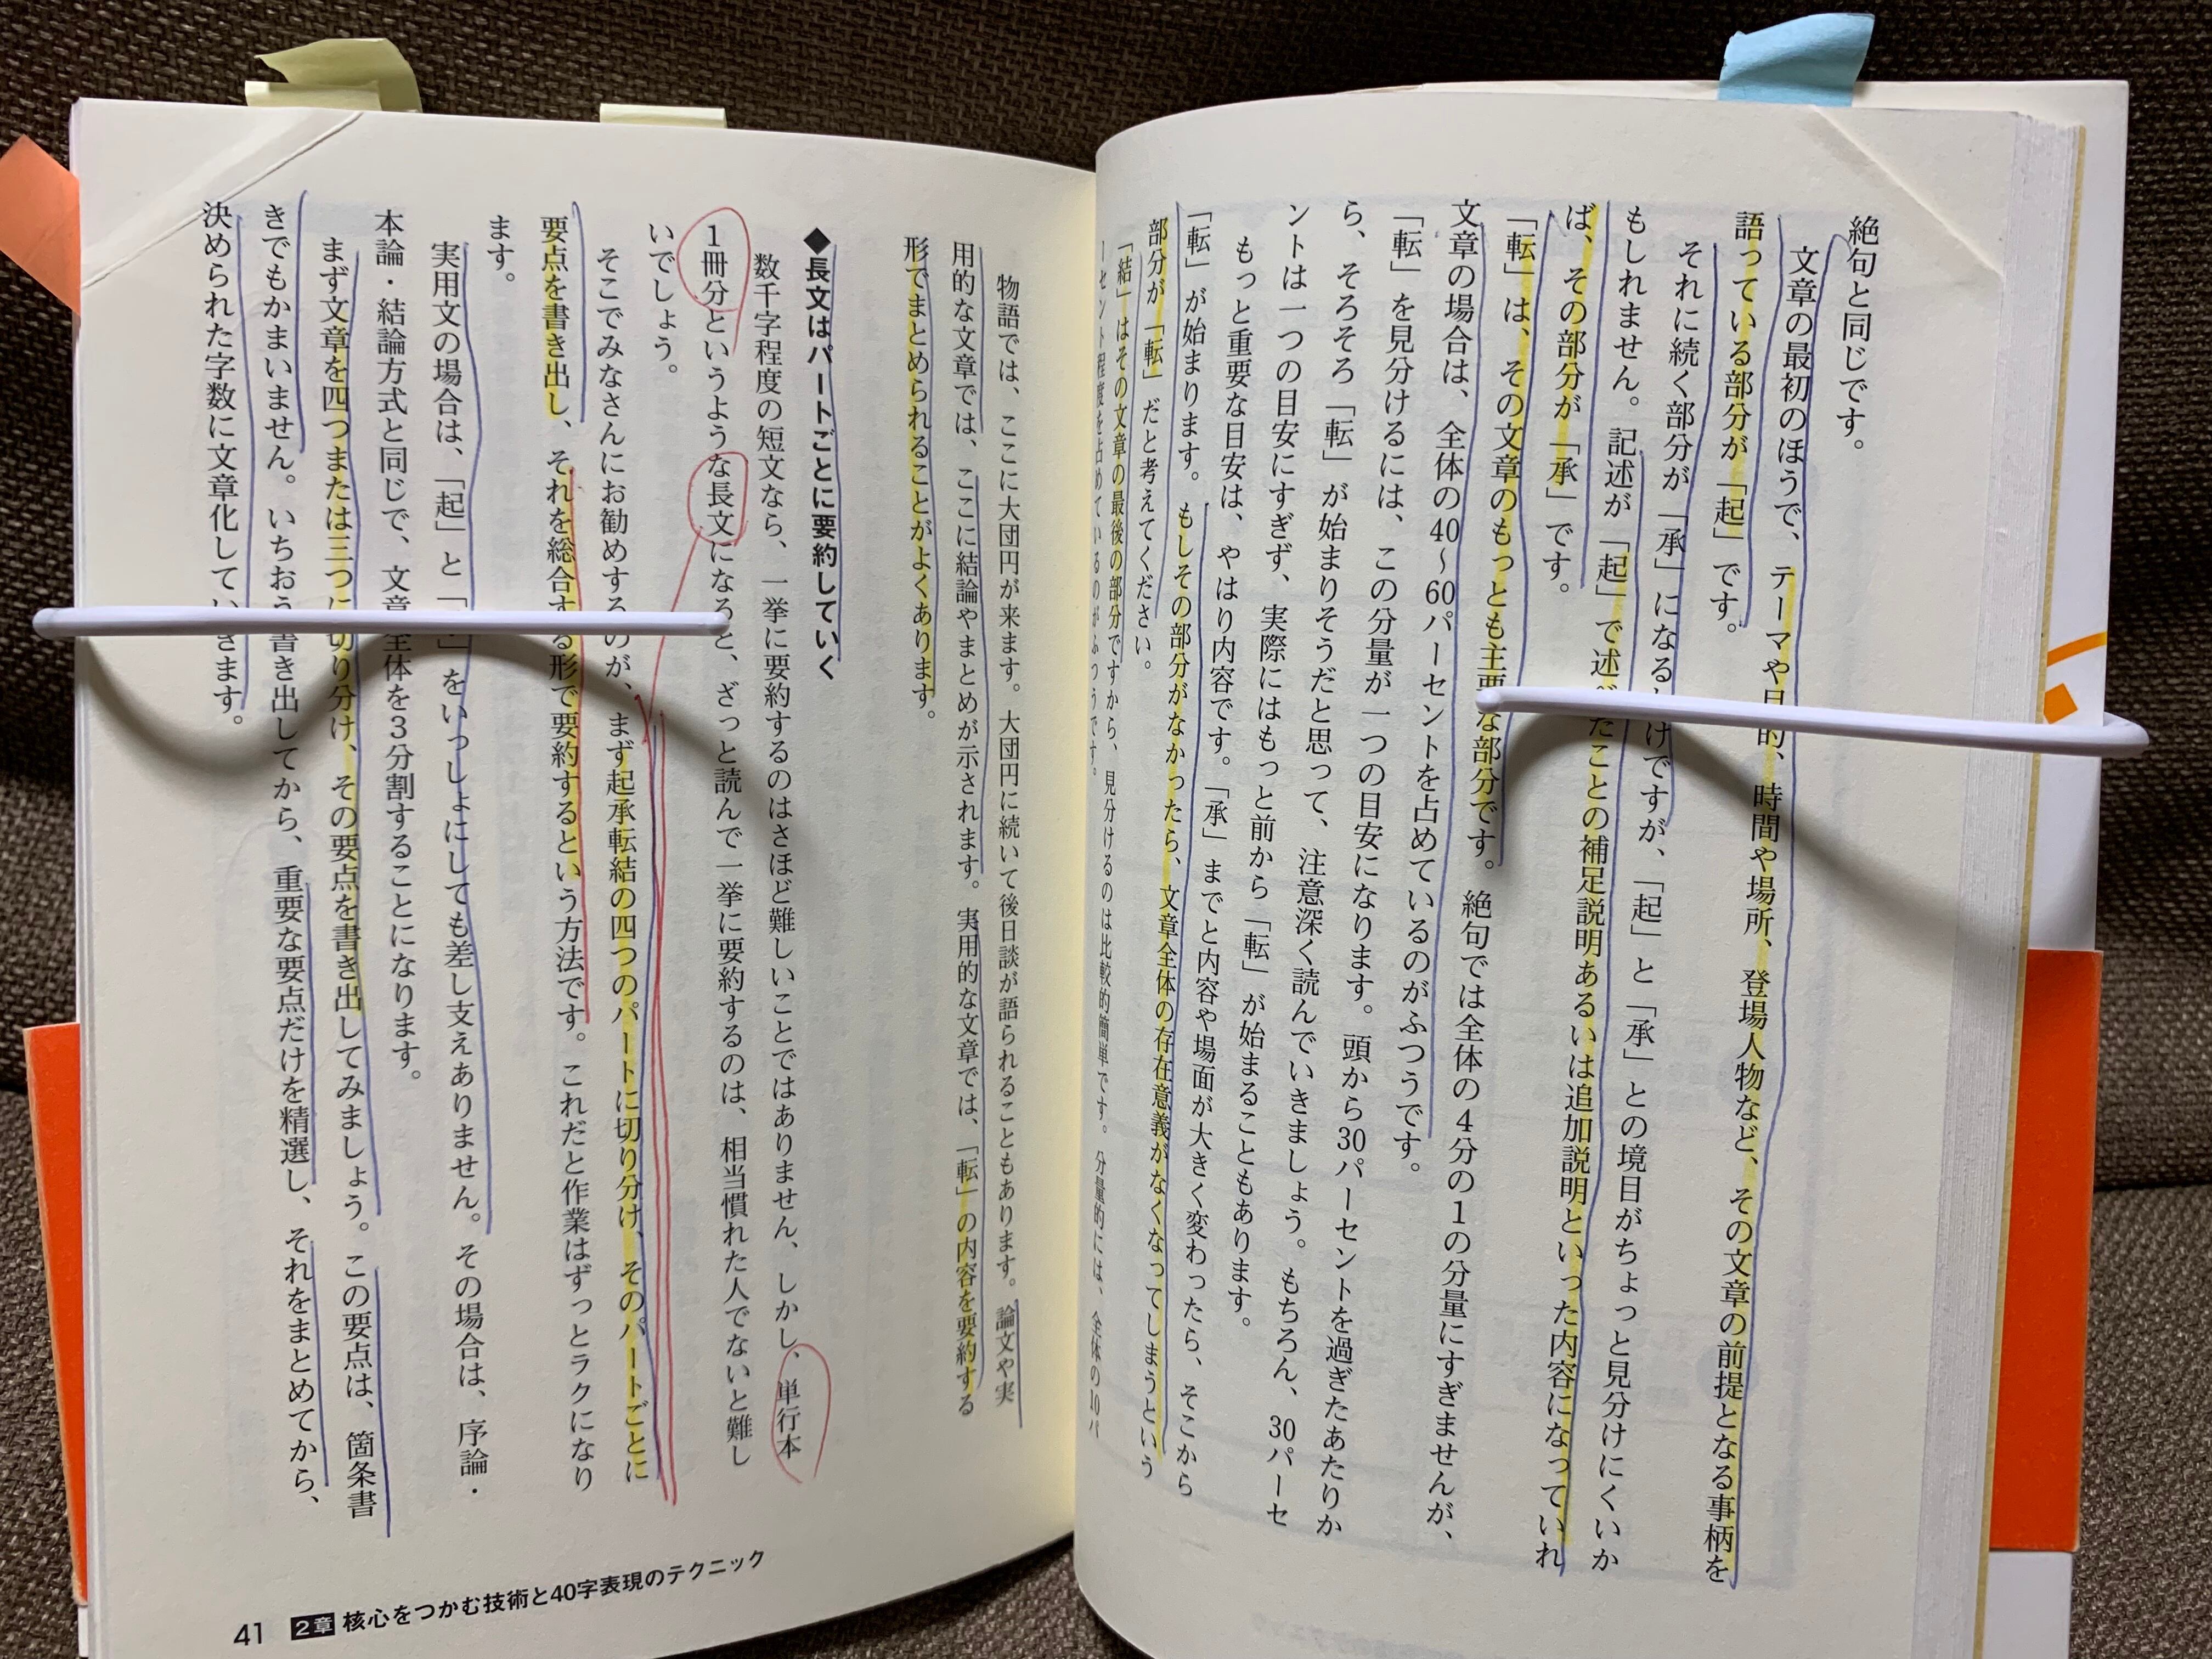 絶句と同じです。
文章の最初のほうで、テーマや目的、時間や場所、登場人物など、その文章の前提となる事柄を
語っている部分が「起」です。
それに続く部分が「承」になるわけですが、「起」と「承」との境目がちょっと見分けにくいか
もしれません。記述が「起」で述べたことの補足説明あるいは追加説明といった内容になっていれ
ば、その部分が「承」です。
「転」は、その文章のもっとも主要な部分です。絶句では全体の4分の1の分量にすぎませんが、
文章の場合は、全体の40～60パーセントを占めているのがふつうです。
「転」を見分けるには、この分量が一つの目安になります。頭から30パーセントを過ぎたあたりか
ら、そろそろ「転」が始まりそうだと思って、注意深く読んでいきましょう。もちろん、30パーセ
ントは一つの目安にすぎず、実際にはもっと前から「転」が始まることもあります。
もっと重要な目安は、やはり内容です。「承」までと内容や場面が大きく変わったら、そこから
「転」が始まります。もしその部分がなかったら、文章全体の存在意義がなくなってしまうという
部分が「転」だと考えてください。
「結」はその文章の最後の部分ですから、見分けるのは比較的簡単です。分量的には、全体の10パ
ーセント程度を占めているのがふつうです。
物語では、ここに大団円が来ます。大団円に続いて後日談が語られることもあります。論文や実
用的な文章では、ここに結論やまとめが示されます。実用的な文章では、「転」の内容を要約する
形でまとめられることがよくあります。
◆長文はパートごとに要約していく
数千字程度の短文なら、一挙に要約するのはさほど難しいことではありません、しかし、単行本
1冊分というような長文になると、ざっと読んで一挙に要約するのは、相当慣れた人でないと難し
いでしょう。
そこでみなさんにお勧めするのが、まず起承転結の四つのパートに切り分け、そのパートごとに
要点を書き出し、それを総合する形で要約するという方法です。これだと作業はずっとラクになり
ます。
実用文の場合は、「起」と「」をいっしょにしても差し支えありません。その場合は、序論・
本論・結論方式と同じで、文章全体を3分割することになります。
まず文章を四つまたは三つに切り分け、その要点を書き出してみましょう。この要点は、箇条書
きでもかまいません。いちおう書き出してから、重要な要点だけを精選し、それをまとめてから、
決められた字数に文章化していきます。
41 2章 核心をつかむ技術と40字表現のテクニック